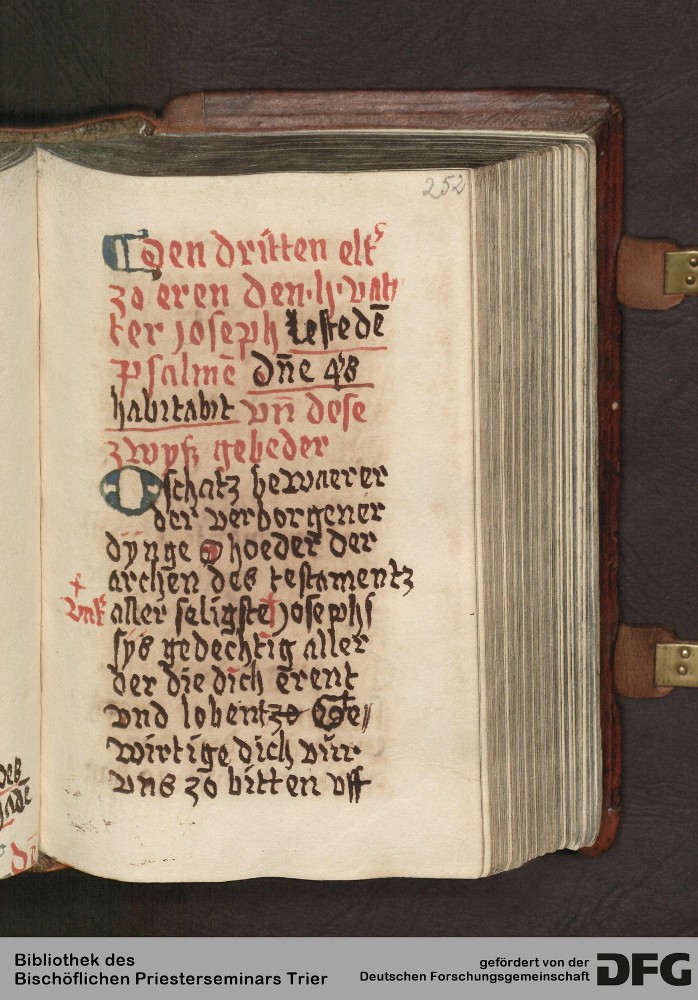 252
Den dritten elt͛
zo eren den·h·vat/
ter joseph Lestedē
Psalmē dn̄e q͛s
habitabit vn̄ dese
zwyß gebeder
O schatz bewaerer
der verborgener
dÿnge O hoeder der
archen des testamentz
+ vns͛ aller seligste + josephs
sÿs gedechtig aller
der die dich erent
vnd lobent zo Ge//
wirtige dich vur
vns zo bitten vff
des
Bibliothek des
Bischöflichen Priesterseminars Trier
gefördert von der
Deutschen Forschungsgemeinschaft
DFG